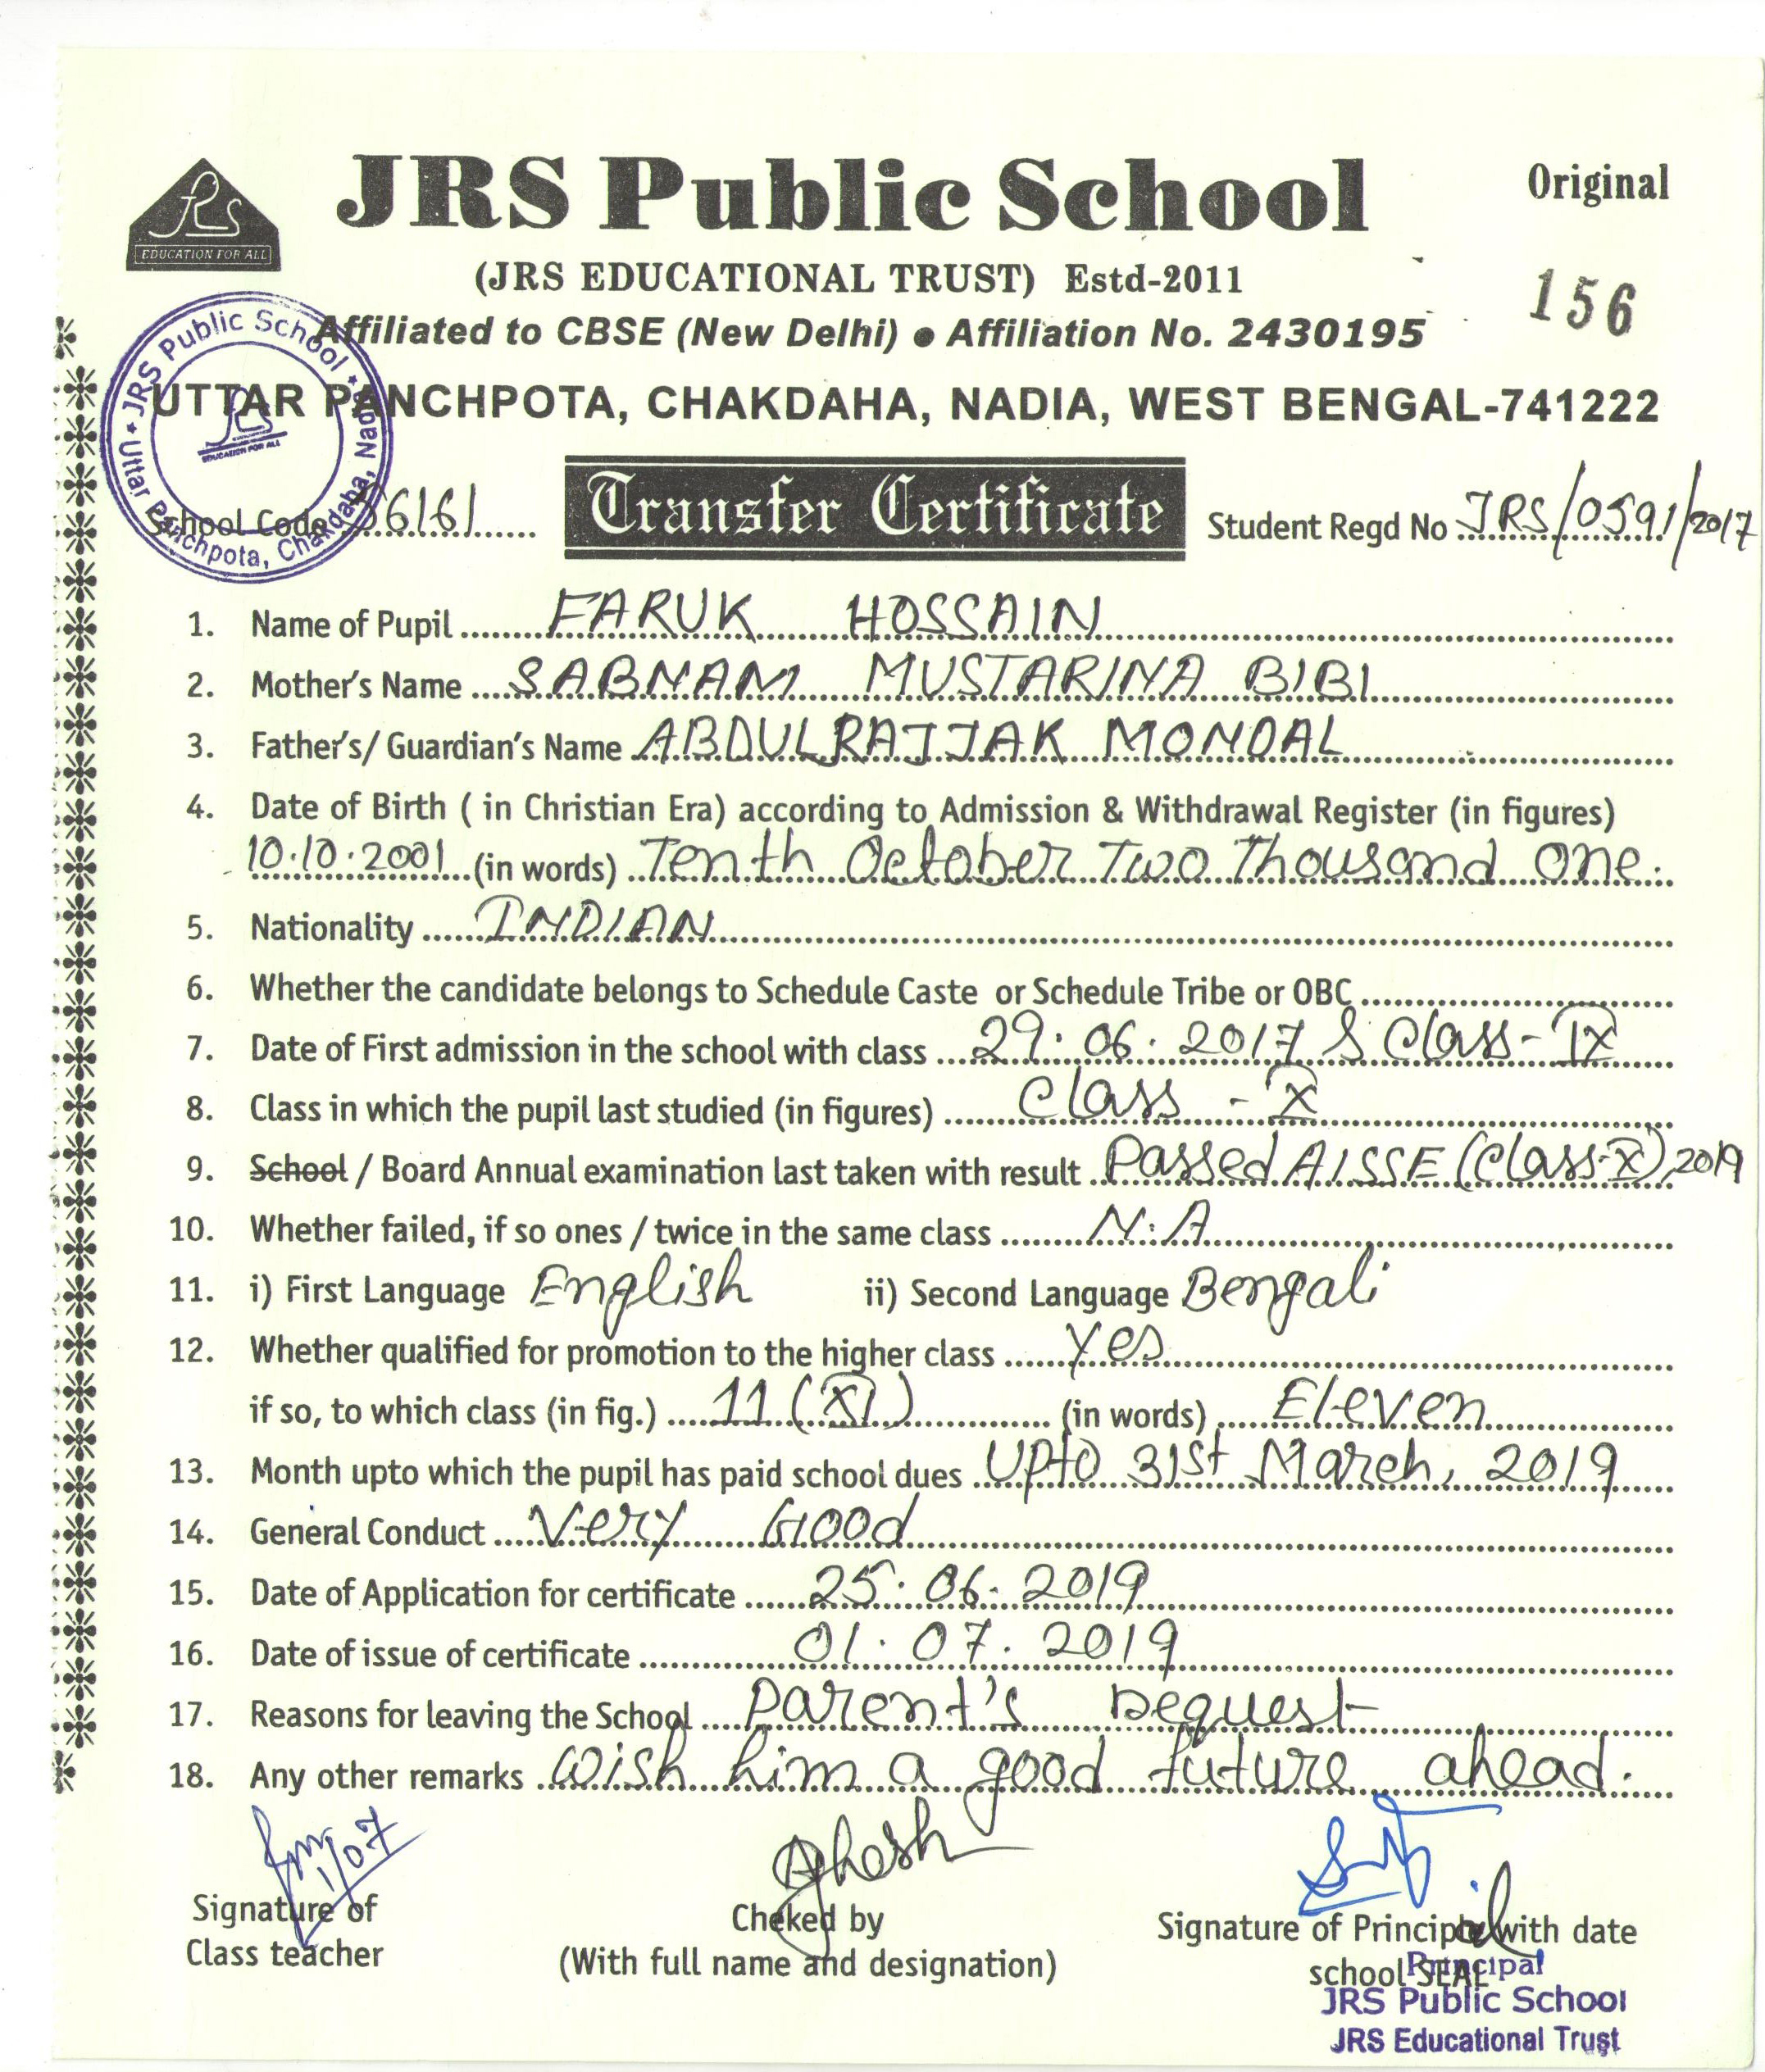 JRS Public School
Original
EDUCATION FOR ALL
(JRS EDUCATIONAL TRUST) Estd-2011
156
Affiliated to CBSE (New Delhi) ● Affiliation No. 2430195
UTTAR PANCHPOTA, CHAKDAHA, NADIA, WEST BENGAL-741222
JRS Public School * Uttar Panchpota, Chakdaha, Nadia *
EDUCATION FOR ALL
School Code 56161 Transfer Certificate Student Regd No JRS/0591/2017
1. Name of Pupil FARUK HOSSAIN
2. Mother's Name SABNAM MUSTARINA BIBI
3. Father's/ Guardian's Name ABDULRAJJAK MONDAL
4. Date of Birth ( in Christian Era) according to Admission & Withdrawal Register (in figures)
10.10.2001 (in words) Tenth October Two Thousand One.
5. Nationality INDIAN
6. Whether the candidate belongs to Schedule Caste or Schedule Tribe or OBC
7. Date of First admission in the school with class 29.06.2017 & Class-IX
8. Class in which the pupil last studied (in figures) Class - X
9. School / Board Annual examination last taken with result Passed AISSE (Class-X), 2019
10. Whether failed, if so ones / twice in the same class N.A
11. i) First Language English ii) Second Language Bengali
12. Whether qualified for promotion to the higher class Yes
if so, to which class (in fig.) 11 (XI) (in words) Eleven
13. Month upto which the pupil has paid school dues Upto 31st March, 2019
14. General Conduct Very Good
15. Date of Application for certificate 25.06.2019
16. Date of issue of certificate 01.07.2019
17. Reasons for leaving the School Parent's Request
18. Any other remarks Wish him a good future ahead.
1/07
Ghosh
Signature of
Class teacher
Cheked by
(With full name and designation)
Signature of Principle with date
school SEAL
Principal
JRS Public School
JRS Educational Trust